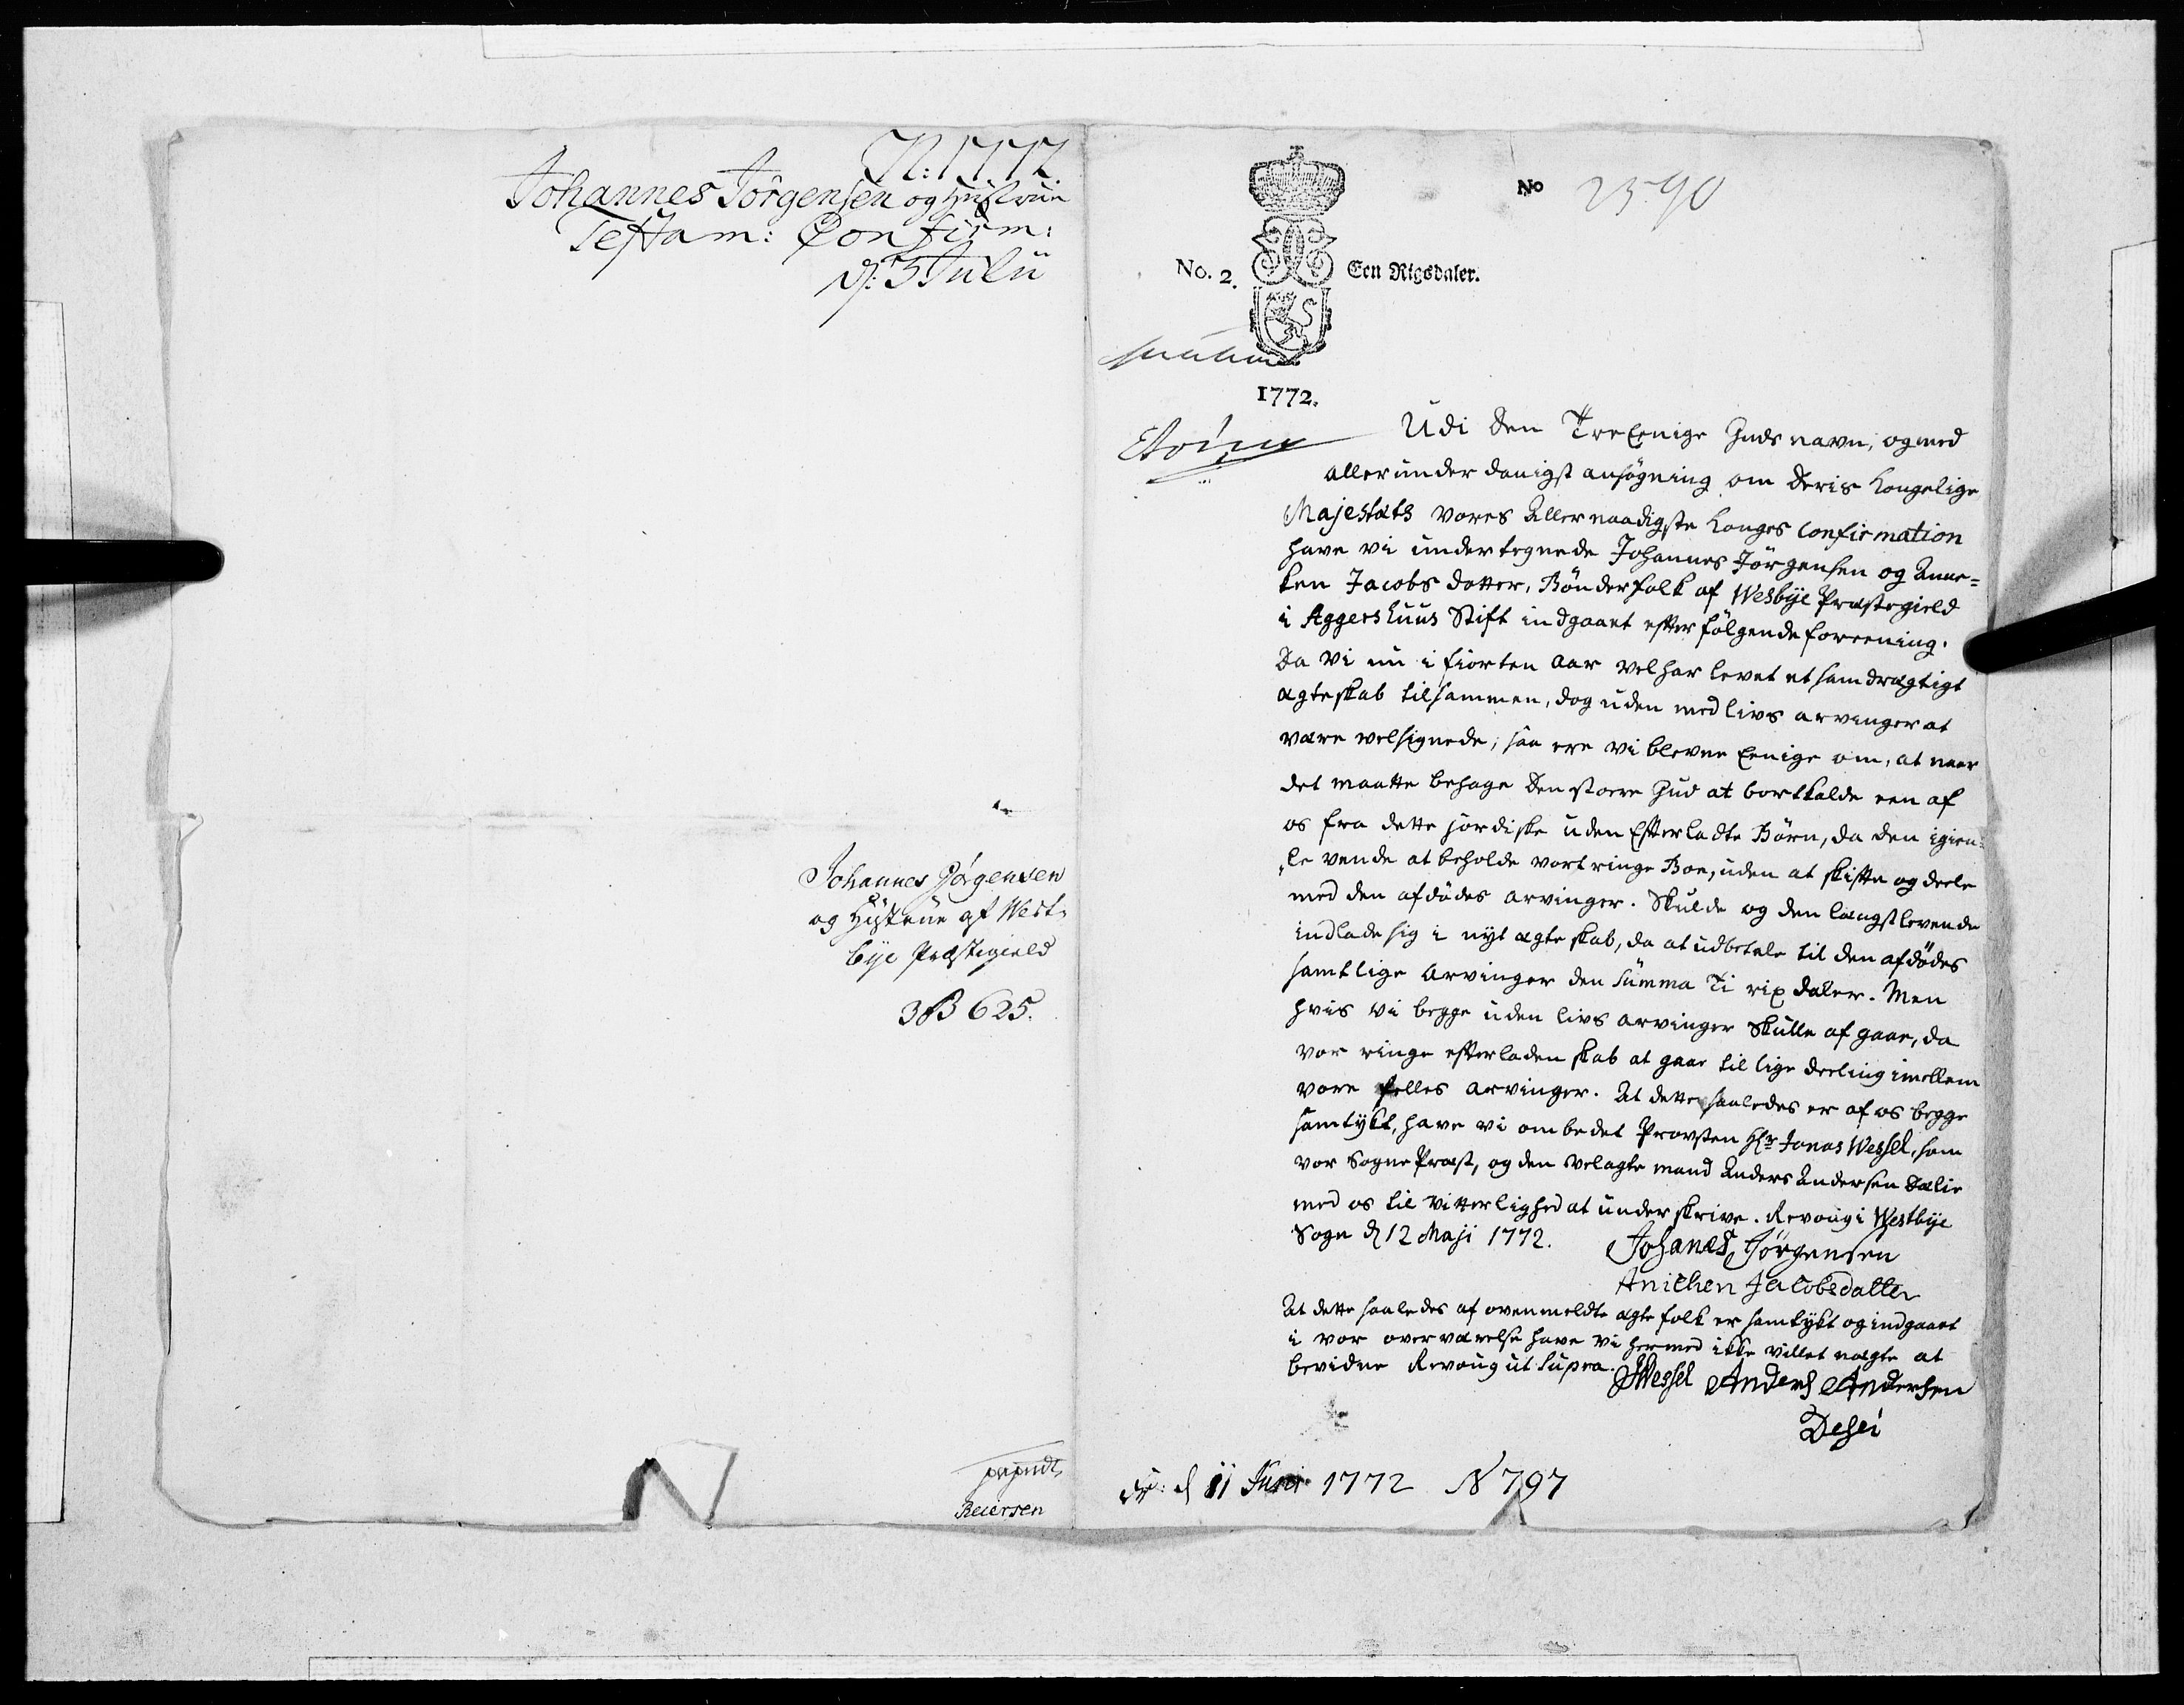 N: 1772.
Johannes Jörgensen og Hustrue
Testam: Confirm:
d: 3 Julii
Johannes Jörgensen
og Hustrue af West-
bye Præstegield
3 B 625.
Reiersen
No 2590
No. 2. Een Rigsdaler.
1772.
Udi den TreEenige Guds navn, og med
allerunderdanigst ansøgning om Deris Kongelige
Majestæts vores Allernaadigste Konges Confirmation
have vi undertegnede Johannes Jörgensen og Anne-
ken Jacobs dotter, Bönderfolk af Wesbÿe Præstegield
i Aggershuus Stift indgaaet efterfölgende foreening.
Da vi nu i fiorten aar vel har levet et samdrægtigt
ægteskab tilsammen, dog uden med livs arvinger at
være velsignede; saa ere vi blevne Eenige om, at naar
det maatte behage den store Gud at bortkalde een af
os fra dette jordiske uden Efterladte Börn, da den igien-
levende at beholde vort ringe Boe, uden at skifte og deele
med den afdödes arvinger. Skulde og den længstlevende
indlade sig i nyt ægteskab, da at udbetale til den afdödes
samtlige arvinger den Summa Ti rixdaler. Men
hvis vi begge uden livs arvinger Skulle afgaae, da
vor ringe efterladenskab at gaae til lige deeling imellem
vore felles arvinger. At dette saaledes er af os begge
samtykt, have vi ombedet Provsten Hr Jonas Wessel, som
vor Sogne Præst, og den velagte mand Anders Andersen Dælie
med os til vitterlighed at underskrive. Krvoug i Westbye
Sogn d 12 Maji 1772.
Johanes Jörgensen
Anichen Jacobsdatter
At dette saaledes af ovenmeldte ægtefolk er samtykt og indgaaet
i vor overværelse have vi hermed ikke villet nægte at
bevidne Krvoug ut supra.
JWessel Anders Andersen
d 11 Juni 1772 N 797